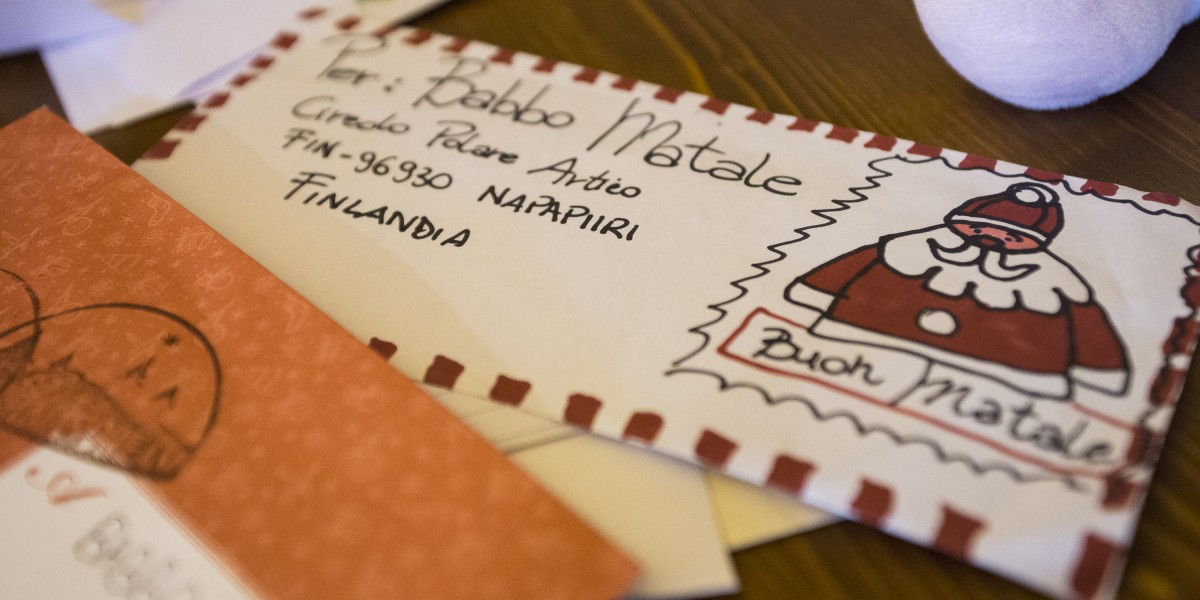 Per: Babbo Natale
Circolo Polare Artico
FIN-96930 NAPAPIIRI
FINLANDIA
Buon Natale